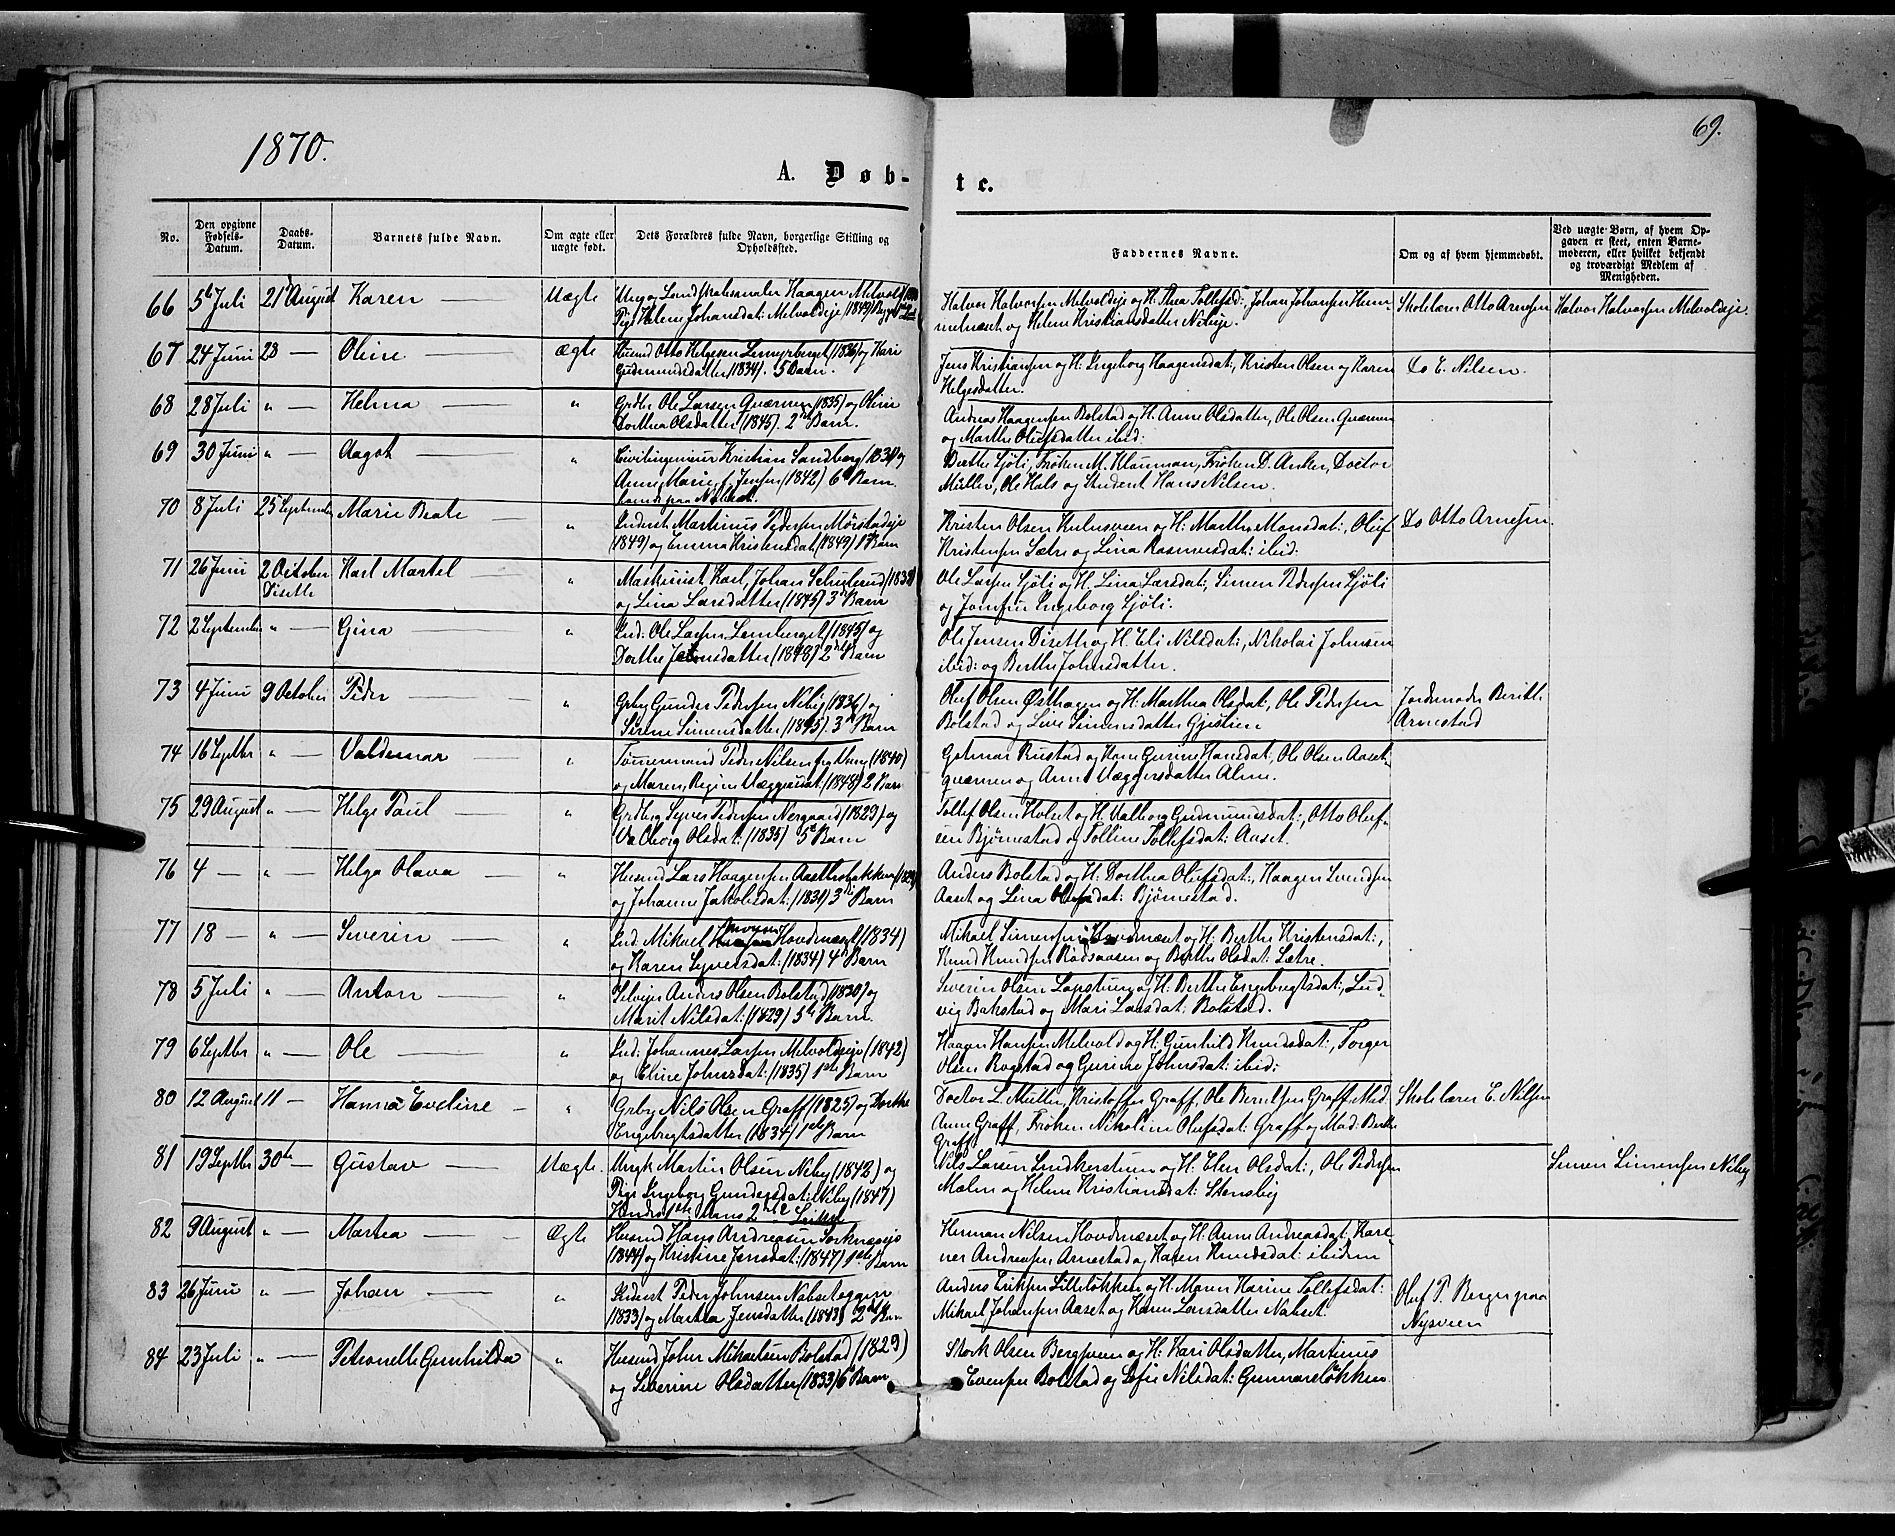 1870.
69.
A. Døb-
te.
No.
Den opgivne Fødsels-Datum.
Daabs-Datum.
Barnets fulde Navn.
Om ægte eller uægte født.
Dets Forældres fulde Navn, borgerlige Stilling og Opholdssted.
Faddernes Navne.
Om og af hvem hjemmedøbt.
Ved uægte Børn, af hvem Opgaven er skeet, enten Barnemoderen, eller hvilket bekjendt og troværdigt Medlem af Menigheden.
66 5t Juli 21 August Karen — Uægte Haagen Melvold
Pige Helene Johansdat: Melvoldeje (1843)
Halvor Halvorsen Melvoldeje og H: Thea Tollefsd:, Johan Johansen
og Helene Kristiansdatter Nibeje.
Skolelærer Otto Arnesen
Halvor Halvorsen Melvoldeje
67 24 Juni 28 — Oline — Ægte Husmd Otto Helgesen Lemyrberget (1836) og Kari
Gudmundsdatter (1834). 5 Barn.
Jens Kristiansen og H: Ingeborg Haagensdat:, Kristen Olsen og Karen
Helgesdatter.
Do E. Nilsen.
68 28 Juli " — Helma — " Grdbr Ole Larsen Qvernen (1835) og Oline
Dorthea Olsdatter (1845). 2det Barn.
Andreas Haagensen Bolstad og H: Anne Olsdatter, Ole Olsen Qvernen
og Marthe Olufsdatter ibid:
69 30 Juni " — Aagot — " Civilingeniør Kristian Sandberg (1831) og
Anne Marie f. Jensen (1842) 6te Barn.
Berthe Sjøli, Frøken M. Klauman, Frøken D. Anker, Doctor
Müller, Ole Hals og Student Hans Nilsen.
70 8 Juli 25 September Marie Beate — " Inderst Martinus Pedersen Mørstadeje
(1849) og Emma Kristensdat: (1849) 1st Barn
Kristen Olsen Kulusveen og H: Marthe Monsdat:, Oluf
Kristensen Sætre og Lina Rasmusdat: ibid:
Do Otto Arnesen.
71 26 Juni 2 October Karl Martel — " Maskinist Karl Johan Schulerud (1838)
Diseth
og Lina Larsdatter (1845) 3die Barn
Ole Larsen Sjøli og H: Lina Larsdat:, Simen Pedersen Sjøli
og Jomfru Ingeborg Sjøli.
72 2 September " — Gina — " Ind: Ole Larsen Lemberget (1845) og
Dorthe Johnsdatter (1848) 2det Barn
Ole Jensen Diseth og H: Eli Nilsdat:, Nikolai Johnsen
ibid: og Berthe Johnsdatter.
73 4 Juni 9 October Peder — " Grbr Gunder Pedersen Niby (1836) og
Sirene Simensdatter (1845). 3die Barn
Oluf Olsen Østhagen og H: Marthea Olsdat:, Ole Pedersen
Bolstad og Live Simensdatter
Jordemoder Berithe
Arnestad
74 16 Septbr " — Valdemar — " Tømmermand Peder Nilsen (1840)
og Maren Regine (1848) 2 Barn
Gotmar Rustad og Kone Gurine Hansdat:, Ole Olsen Aaset-
qvernen og Anne Væggersdatter Alme.
75 29 August " — Helge Paul — " Grdbrg Syver Pedersen Nergaard (1829) og
Valborg Olsdat: (1835) 5te Barn
Tollef Olsen Holset og H: Valborg Gudmundsdat:, Otto Oluf-
sen Bjørnestad og Tolline Tollefsdat: Aaset.
76 4 — " — Helga Olava — " Husmd Lars Haagensen (1829)
og Johanne Jakobsdat: (1831) 3die Barn
Anders Bolstad og H: Dorthea Olufsdat:, Haagen Svendsen
Aaset og Lina Olufsdat: Bjørnestad.
77 18 — " — Severin — " Ind. Mikael Hovdenæset (1834)
og Karen Syversdat: (1834) 4de Barn
Mikael Simensen Hovdenæset og H: Berthe Kristensdat:,
Knud Knudsen Rødsaasen og Berthe Olsdat: Sætre.
78 5 Juli " — Anton — " Selvejer Anders Olsen Bolstad (1830) og
Marit Nilsdat: (1829) 5te Barn.
Severin Olsen Lopstuen og H: Berthe Engebregtsdat:, Lud-
vig Bakstad og Mari Larsdat: Bolstad.
79 6 Septbr " — Ole — " Ind: Johannes Larsen Melvoldeje (1842)
og Eline Johnsdat: (1835) 1ste Barn
Haagen Hansen Melvold og H: Gunhild Knudsdat:, Torger
Olsen Rogstad og Gurine Johnsdat: ibid:
80 12 August 11 — Hanna Eveline — " Grbr Nils Olsen Graff (1825) og Dorthe
Engebregtsdatter (1834) 1ste Barn
Doctor L. Müller, Kristoffer Graff, Ole Berntsen Graff, Mad:
Anne Graff, Frøken Nikoline Olufsdat: Graff og Mad: Berthe
Graff.
Skolelærer E. Nilsen
81 19 Septbr 30te — Gustav — Uægte. Ungk Martin Olsen Niby (1842) og
Pige Ingeborg Gundersdat: Niby (1847)
Hendes 1ste Hans 2det Leiermaal
Nils Larsen Lindkerstuen og H: Elen Olsdat:, Ole Pedersen
Malm og Helene Kristiansdat: Stensby
Simen Simensen Niby
82 9 August " — Martea — Ægte Husmd Hans Andreasen Sorknæseje
(1844) og Kristine Jensdat: (1847) 1ste Barn
Herman Nilsen Hovdenæset og H: Anne Andreasdat:, Kare-
nus Andreasen Arnestad og Karen Knudsdat: ibidem
83 26 Juni " — Johan — " Peder Johnsen Nabsetoggen
(1833) og Martea Jensdatter (1843) 2det Barn
Anders Eriksen Lilleløkken og H: Maren Karine Tollefsdat:
Mikael Johansen Aaset og Karen Larsdatter Nabset
Oluf P. Berger paa
Nysveen
84 23 Juli " — Petronelle Gunhilda " Husmd John Mikaelsen Bolstad (1829)
og Severine Olsdatter (1833) 6te Barn
Stork Olsen Bergsveen og H: Kari Olsdatter, Martinus
Evensen Bolstad og Sofie Nilsdat: Gunnarsløkken.